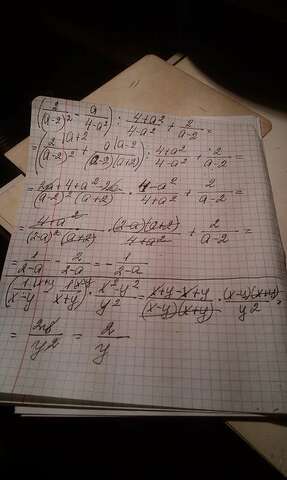 (2/(a-2)² - a/(4-a²)) : (4+a²)/(4-a²) + 2/(a-2) =
= (2 |a+2/(a-2)² + a |a-2/((a-2)(a+2))) : (4+a²)/(4-a²) + 2/(a-2) =
= (2a+4+a²-2a)/((a-2)²(a+2)) · (4-a²)/(4+a²) + 2/(a-2) =
= (4+a²)/((2-a)²(a+2)) · ((2-a)(a+2))/(4+a²) + 2/(a-2) =
= 1/(2-a) - 2/(2-a) = - 1/(2-a)
(1 |x+y/(x-y) - 1 |x-y/(x+y)) · (x²-y²)/y² = (x+y-x+y)/((x-y)(x+y)) · ((x-y)(x+y))/y² =
= 2y/y² = 2/y